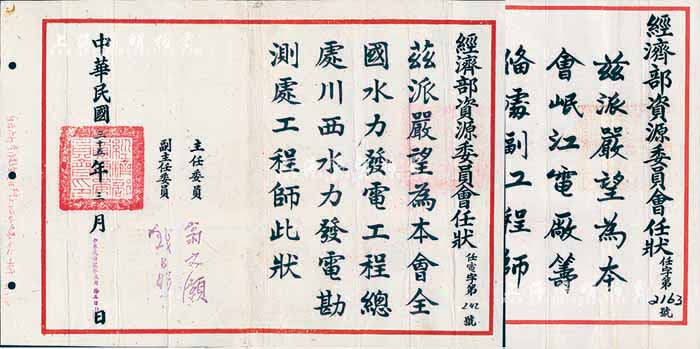 經濟部資源委員會任狀 任電字第242號
茲派嚴望為本會全
國水力發電工程總
處川西水力發電勘
測處工程師此狀
主任委員 翁文灝
副主任委員 錢昌照
中華民國三十五年二月 日
經濟部資源委員會任狀 任字第2163號
茲派嚴望為本
會岷江電廠籌
備處副工程師